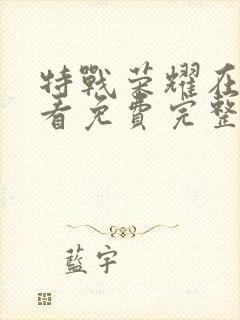 特戰荣耀在
看免費完整
藍宇